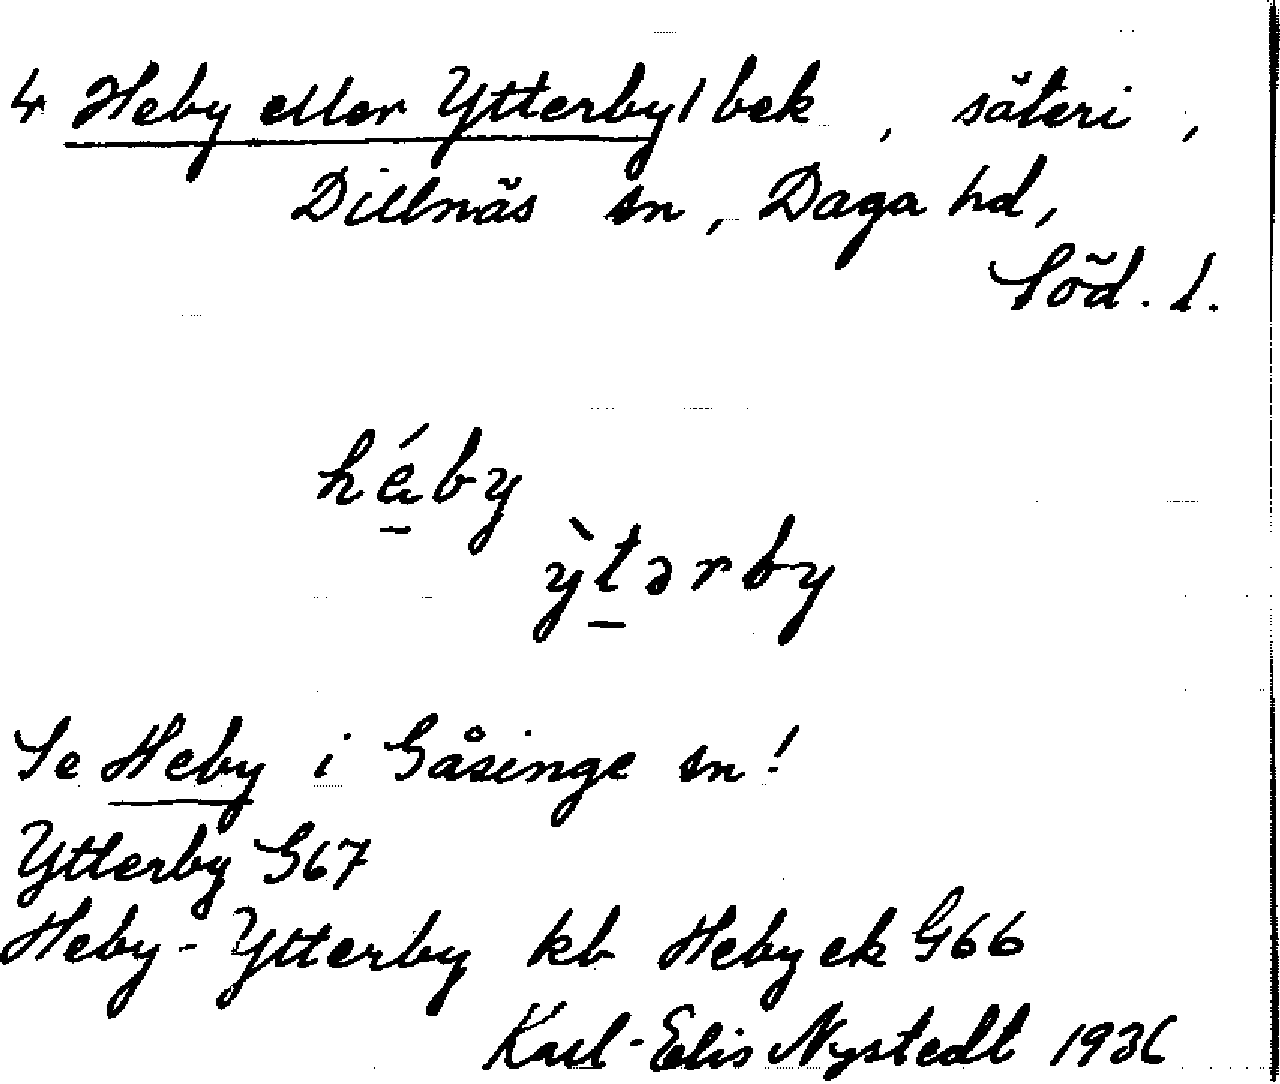 4 Heby eller Ytterby / bek , säteri ,
Dillnäs sn , Daga hd ,
Söd. l.
hé̱by
ỳṯərby
Se Heby i Gåsinge sn !
Ytterby G67
Heby - Ytterby kb Heby ek G66
Karl-Elis Nystedt 1936